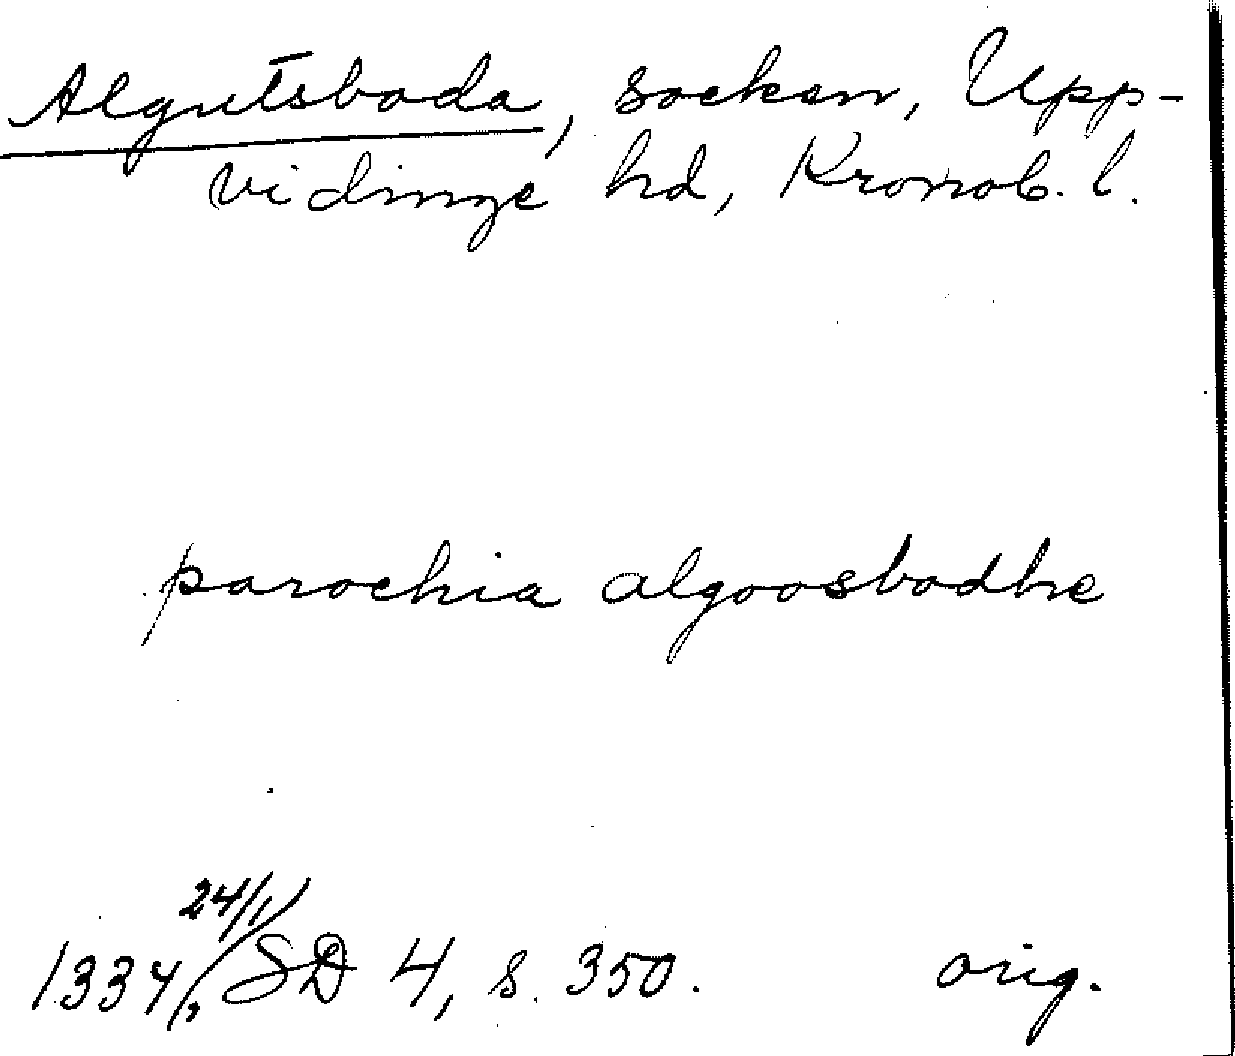 Algutsboda, socken, Upp-
vidinge hd, Kronob. l.
parochia algoosbodhe
24/1
1334, SD 4, s. 350. orig.